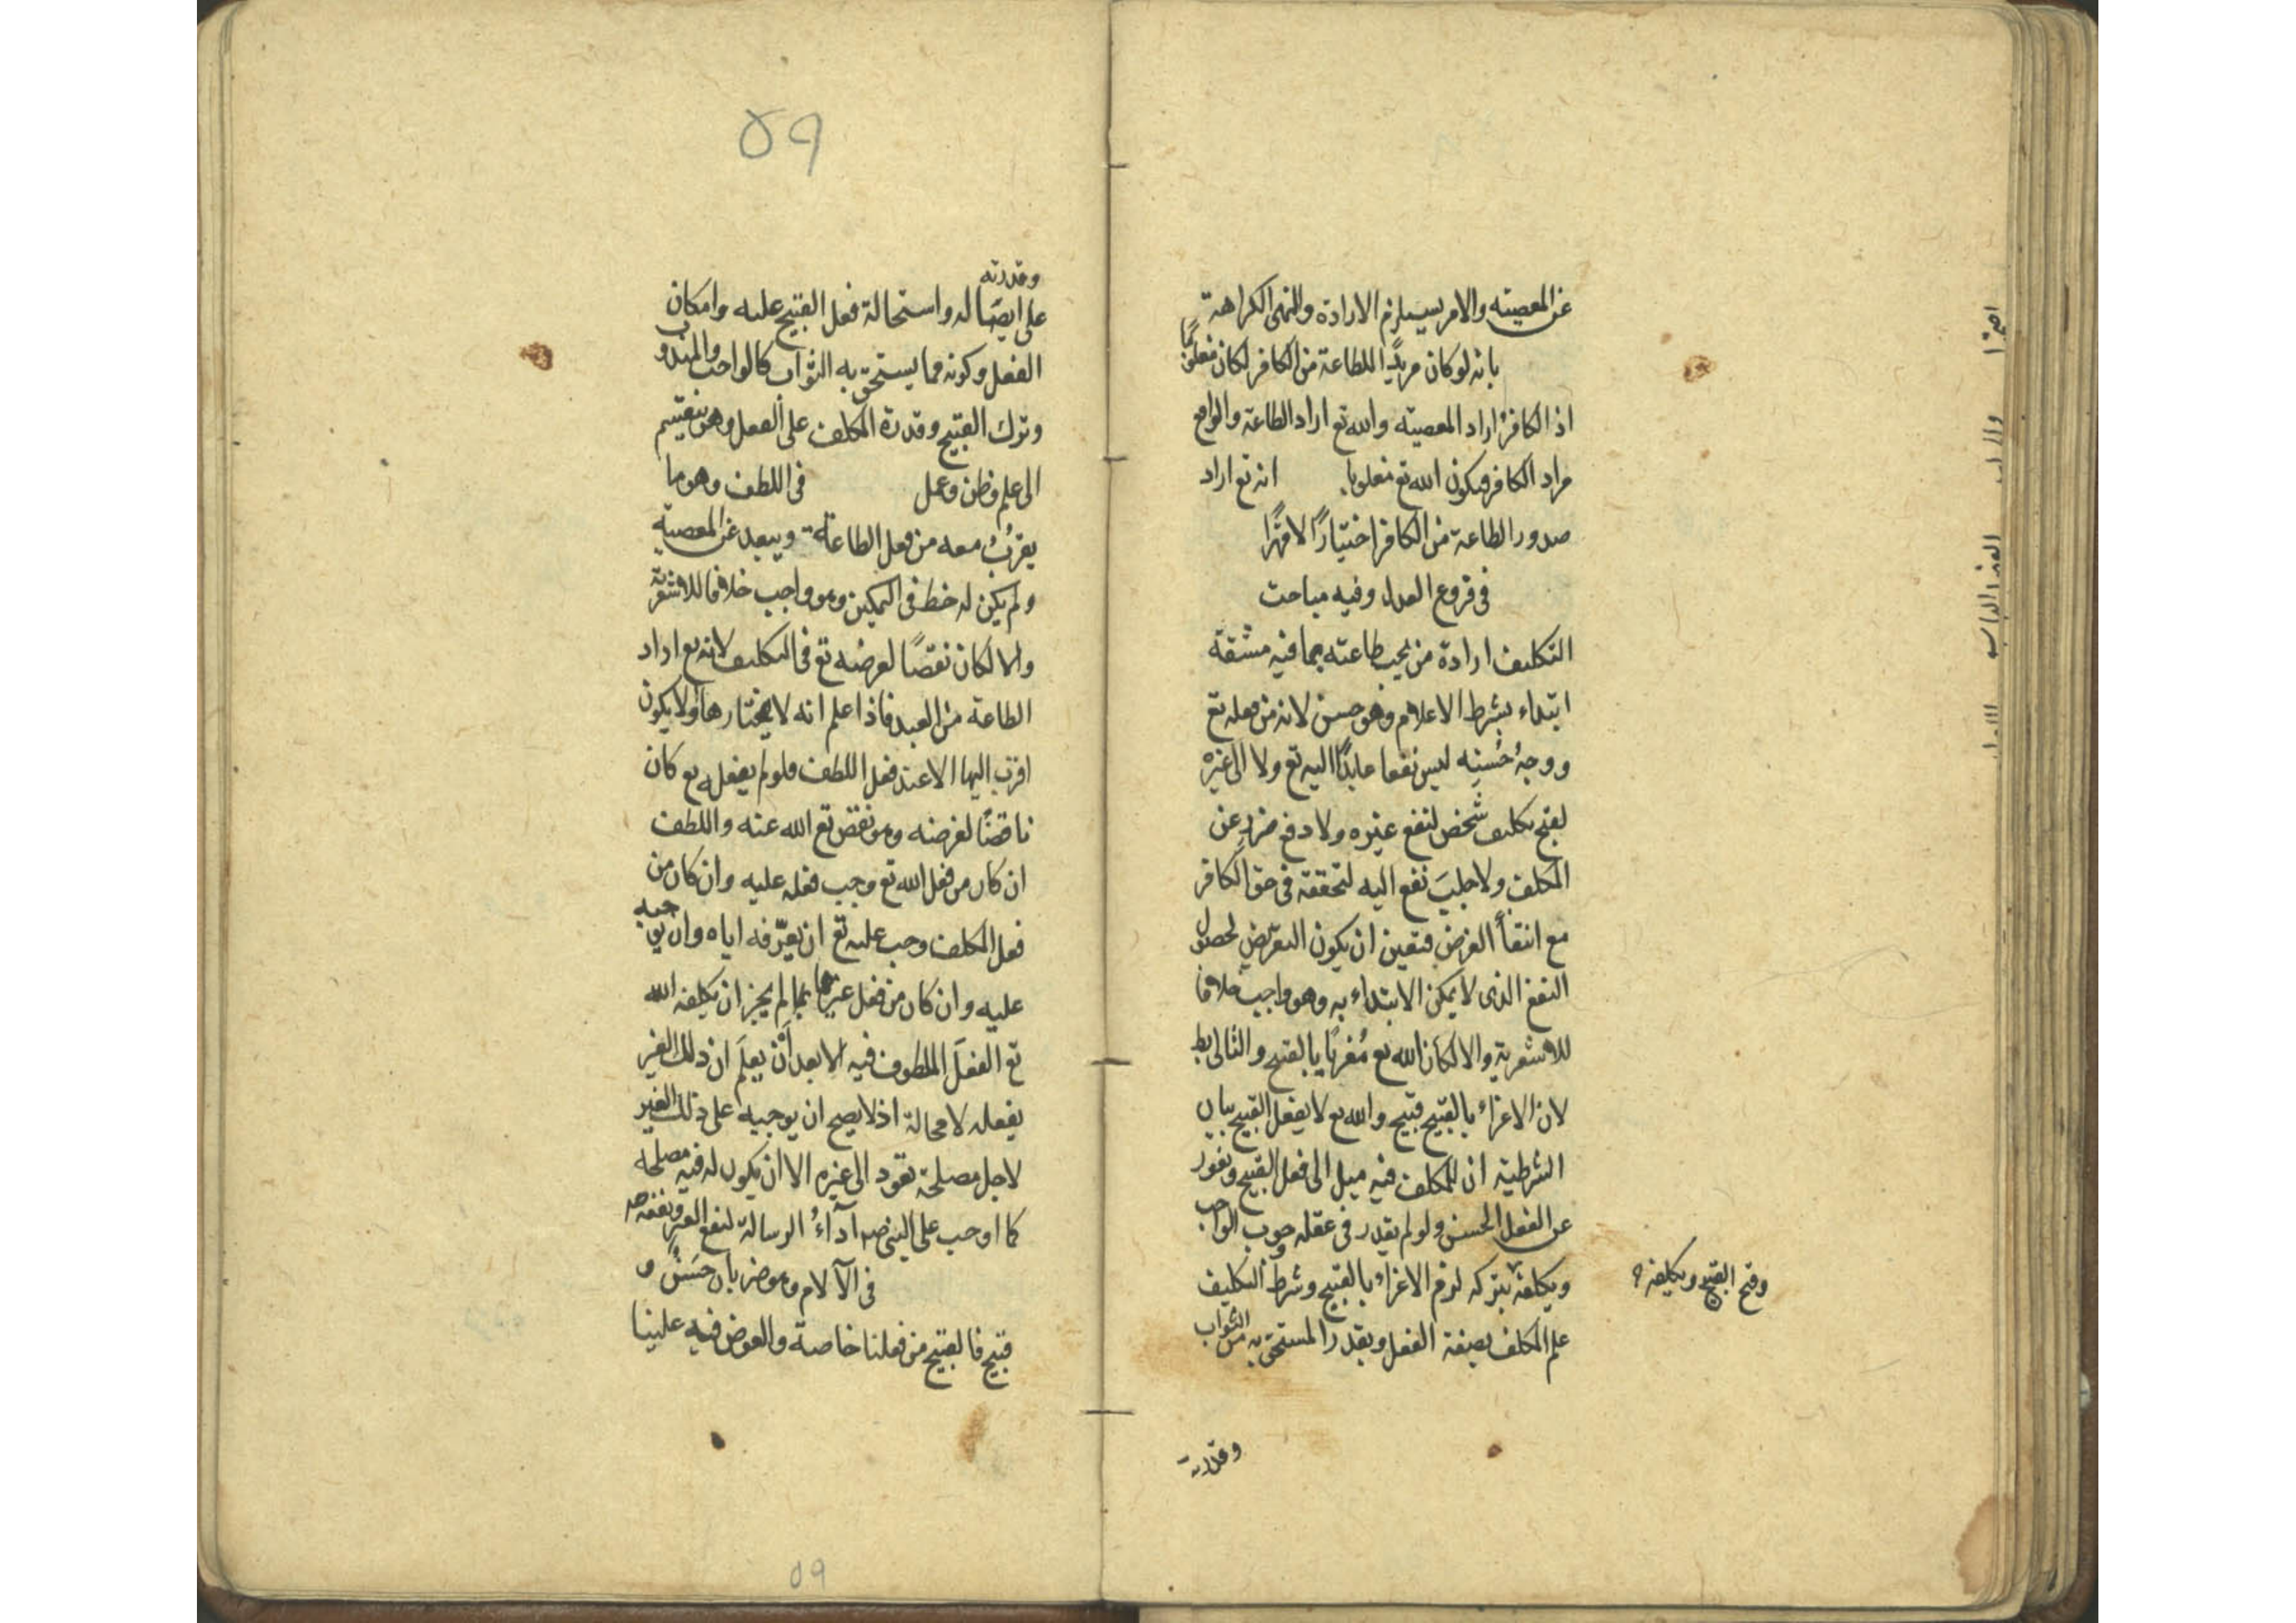 عن المعصيته والامر يستلزم الارادة والنهى الكراهة
بانه لو كان مريدًا للطاعة من الكافر لكان مغلوبًا
اذ الكافر اراد المعصيته والله تع اراد الطاعة والواقع
مراد الكافر فيكون الله تع مغلوبا انه تع اراد
صدور الطاعة من الكافر اختيارًا لا قهرًا
فى فروع العدل وفيه مباحث
التكليف ارادة من يجب طاعته بما فيه مشقة
ابتداء بشرط الاعلام وهو حسن لانه من فعله تع
ووجهُ حُسنِه ليس نفعا عايدًا اليه تع ولا الى غيره
لقبح تكليف شخص لنفع غيره ولا دفع ضررٍ عن
المكلف ولا جلبَ نفع اليه لتحققه فى حق الكافر
مع انتفأ الغرض فتعين ان يكون التعريض لحصول
النفع الذى لا يمكن الابتداء به وهو واجب خلافا
للاشعرية والا لكان الله تع مُغريًا بالقبح والتالى بط
لان الاغراء بالقبيح قبيح والله تع لا يفعل القبيح بيان
الشرطية ان للمكلف فيه ميل الى فعل القبيح ونفور
عن الفعل الحسن ولو لم يقدر فى عقله وجوب الواجب
وقبح القبيح وتكليفه
ويكلفه بتركه لزم الاغراء بالقبيح وشرط التكليف
علم المكلف بصفة الفعل وبقدر المستحق به من الثواب
وقدرته
٥٩
وقدرته
على ايصاله واستحالة فعل القبيح عليه وامكان
الفعل وكونه مما يستحق به الثواب كالواجب والمندوب
وترك القبيح وقدرة المكلف على الفعل وهو ينقسم
الى علم وظن وعمل فى اللطف وهو ما
يقربُ معه من فعل الطاعة ويبعد عن المعصية
ولم يكن له حظ فى التمكين وهو واجب خلافا للاشعرية
والا لكان نقضًا لغرضه تع فى التكليف لانه تع اراد
الطاعة من العبد فاذا علم انه لا يختارها ولا يكون
اقرب اليها الا عند فعل اللطف فلو لم يفعله تع كان
ناقضًا لغرضه وهو نقص تع الله عنه واللطف
ان كان من فعل الله تع وجب فعله عليه وان كان من
فعل المكلف وجب عليه تع ان يعرّفه اياه وان يوجبه
عليه وان كان من فعل غيرهما لم يجز ان يكلفه الله
تع الفعلَ الملطوف فيه الا بعد أن يعلَم ان ذلك الغير
يفعله لا محالة اذ لا يصح ان يوجبه على ذلك الغير
لاجل مصلحة تعود الى غيره الا ان يكون له فيه مصلحه
كما اوجب على النبى ص اداءُ الرسالة لنفع الغير ونفعه
فى الآلام وهو ضربان حَسَنٌ و
قبيح فالقبيح من فعلنا خاصة والعوض فيه علينا
٥٩